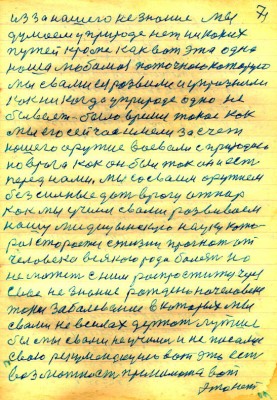 7
из за нашего не знание мы
думаем у природе нет никаких
путей кроме как вот эта одна
наша
мы с вами развили и
как никогда у природе одно не
бывает было время такое как
мы его сейчас имеем за счет
нашего оружие воевали с природою
но врага как он был так он и ест
перед нами. мы с вами оружием
бессильные дат врагу отпор
как мы учили с вами развиваем
нашу медицинскую науку кото-
рая старается с жизни прогнат от
человека всякого рода болезни но
не может с ним распроститу через
свое не знание рождено на человеке
тори заболевание в которых мы
с вами не в силах держат лутше
бы мы с вами не учили и не писали
свою рекомендацию вот это ест
возможност принимат вот
этого нет